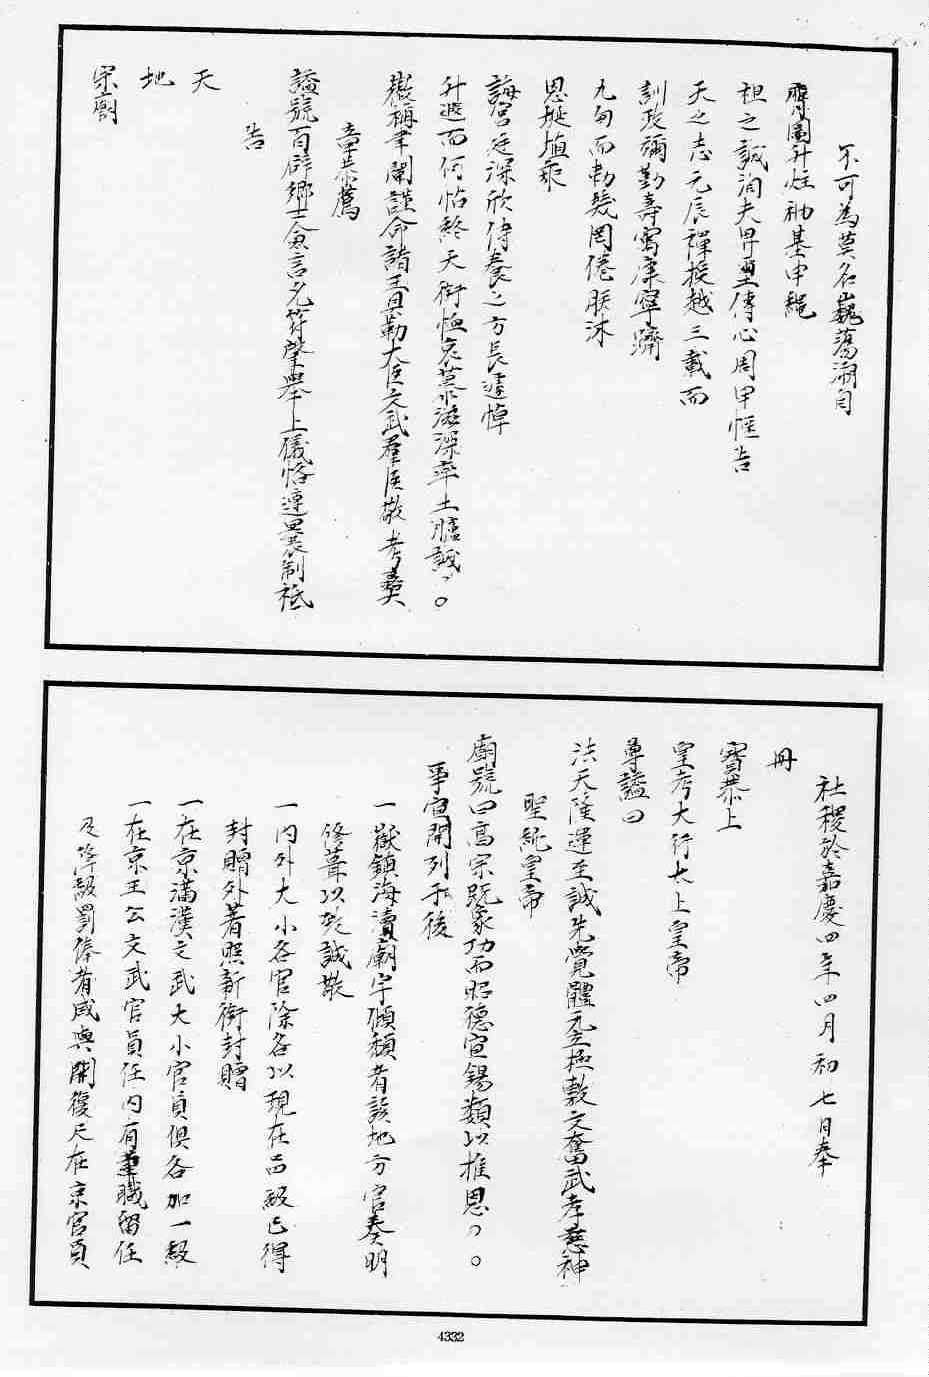 不可為莫名巍蕩溯自
膺圖升炷礽基申繩
祖之誠洵夫畀璽傳心周甲惬告
天之志元辰禪授越三載而
訓政彌勤壽寓康寧躋
九旬而勅幾罔倦朕沐
恩埏埴承
誨宮庭深欣侍養之方長遽悼
升遐而何怙終天銜恤哀慕滋深率土臚誠〻。
徽稱聿闡謹命諸王貝勒大臣文武羣僚敬考彝
章恭薦
謚號百辟鄉士僉言允符肇舉上儀恪遵曩制祗
告
天
地
宗廟
社稷於嘉慶四年四月初七日奉
冊
寶恭上
皇考大行太上皇帝
尊謚曰
法天隆運至誠先覺體元立極敷文奮武孝慈神
聖純皇帝
廟號曰高宗既象功而昭德宣錫類以推恩〻。
事宜開列於後
一嶽鎮海瀆廟宇傾頹者該地方官奏明
修葺以昭誠敬
一內外大小各官除各以現在品級已得
封贈外著照新銜封贈
一在京滿漢文武大小官員俱各加一級
一在京王公文武官員任內有革職留任
及降級罰俸者咸與開復凡在京官員
4332